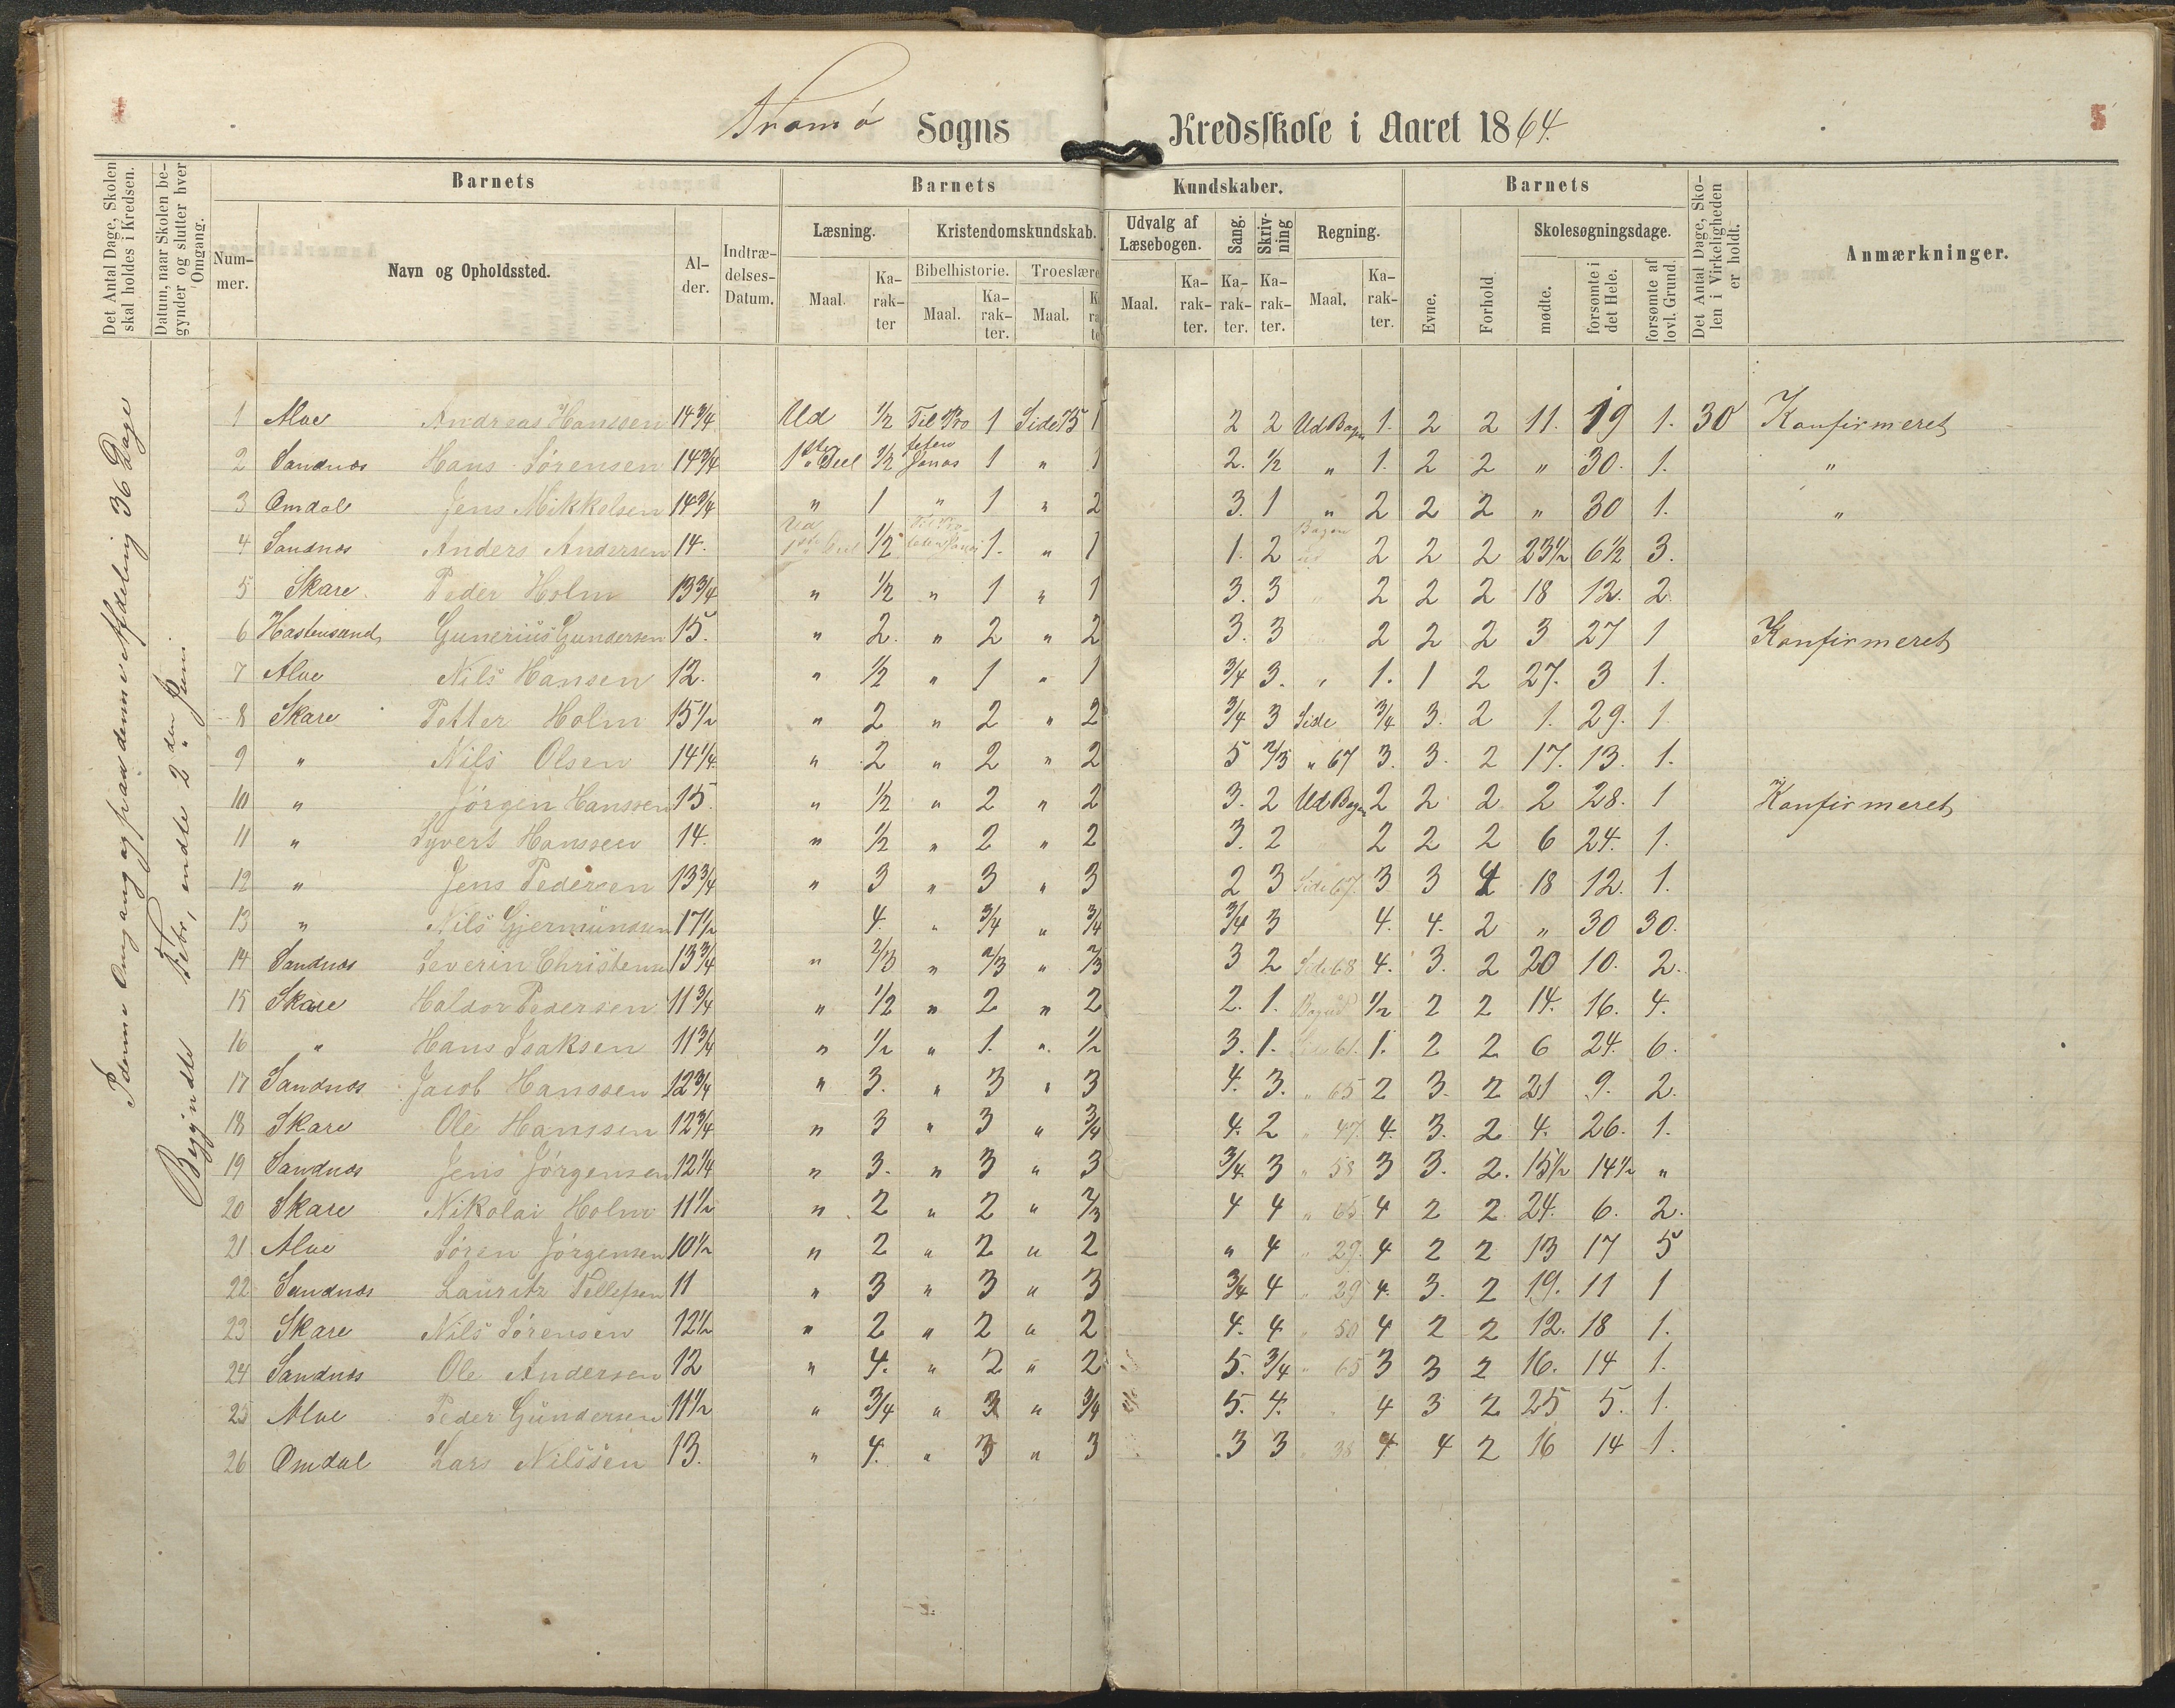 Tromø Sogns Kredsskole i Aaret 1864.
5
Det Antal Dage, Skolen skal holdes i Kredsen.
Datum, naar Skolen begynder og slutter hver Omgang.
Barnets Barnets Kundskaber. Barnets
Det Antal Dage, Skolen i Virkeligheden er holdt.
Anmærkninger.
Nummer. Navn og Opholdssted. Alder. Indtrædelses-Datum.
Læsning. Kristendomskundskab. Udvalg af Læsebogen. Sang. Skrivning Regning. Evne. Forhold Skolesøgningsdage.
Bibelhistorie. Troeslære
Maal. Karakter Maal. Karakter. Maal. Maal. Karakter. Karakter. Karakter. Maal. Karakter. mødte. forsømte i det Hele. forsømte af lovl. Grund.
denne Omgang og paa denne Afdeling 36 Dage
Begyndte Febr, endte 2den Juni.
1 Alve Andreas Hanssen 14 3/4 Ud 1/2 Til Pro 1 Side 75 1 2 2 Ud Bogen 1. 2 2 11. 19 1. 30 Konfirmeret
2 Sandnæs Hans Sørensen 14 3/4 1ste Deel 1/2 feten Jonas 1 " 1 2. 1/2 " 1. 2 2 " 30. 1. "
3 Omdal Jens Mikkelsen 14 3/4 " 1 " 1 " 2 3. 1 " 2 2 2 " 30 1. "
4 Sandnæs Anders Andersen 14. Ud 1ste Deel 1/2 1. " 1 1. 2 Bogen ud 2 2 2 23 1/2 6 1/2 3.
5 Skare Peder Holm 13 3/4 " 1/2 " 1 " 1 3. 3 2 2 2 18 12. 2.
6 Hastensund Gunerius Gundersen 15. " 2. " 2 " 2 3. 3 2 2 2 3 27 1 Konfirmeret
7 Alve Nils Hansen 12. " 1/2 " 1 " 1 3/4 3. " 1. 1 2 27. 3 1.
8 Skare Petter Holm 15 1/2 " 2 " 2 " 2 3/4 3 Side 3/4 3. 2 1. 29. 1
9 " Nils Olsen 14 1/4 " 2 " 2 " 2 5 2/3 " 67 3. 3. 2 17. 13. 1.
10 " Jørgen Hanssen 15. " 1/2 " 2 " 2 3. 2 Ud Bogen 2 2 2 2 28. 1 Konfirmeret
11 " Syvert Hanssen 14. " 1/2 " 2 " 2 3. 2 2 2 2 6 24. 1.
12 " Jens Pedersen 13 3/4 " 3 " 3 " 3 2 3 Side 67. 3 3 4 18 12. 1.
13 " Nils Gjermundsen 17 1/2 4. " 3/4 " 3/4 3/4 3 4. 4. 2 " 30 30.
14 Sandnæs Severin Christensen 13 3/4 " 2/3 " 2/3 " 2/3 3 2 Side 68 4. 3. 2 20 10. 2.
15 Skare Haldor Pedersen 11 3/4 " 1/2 " 2 " 2 2. 1. 1/2 2 2 14. 16. 4.
16 " Hans Isaksen 11 3/4 " 1/2 " 1. " 1/2 3. 1. 61. 1. 2 2 6 24. 6.
17 Sandnæs Jacob Hanssen 12 3/4 " 3. " 3 " 3 4. 3. " 65 2 3. 2 21 9. 2.
18 Skare Ole Hanssen 12 3/4 " 3 " 3 " 3/4 4. 2 " 47. 4. 3. 2 4. 26. 1.
19 Sandnæs Jens Jørgensen 12 1/4 " 3. " 3 " 3 3/4. 3 " 58 3 3. 2. 15 1/2 14 1/2 "
20 Skare Nikolai Holm 11 1/2 " 2 " 2 " 2/3 4 4 " 65 4 2 2 24. 6. 2.
21 Alve Søren Jørgensen 10 1/2 " 2 " 2 " 2 " 4 " 29. 4 2 2 13 17 5
22 Sandnæs Lauritz Tellefsen 11 " 3 " 3 " 3 3/4 4 " 29 4. 3. 2 19. 11 1
23 Skare Nils Sørensen 12 1/2 " 2 " 2 " 2 4. 4 " 50 4 2 2 12. 18 1.
24 Sandnæs Ole Andersen 12 " 4. " 2 " 2 5. 3/4 " 65 3 3 2 16. 14 1.
25 Alve Peder Gundersen 11 1/2 " 3/4 " 3 " 3/4 5. 4. 4 3 2 25 5. 1.
26 Omdal Lars Nilssen 13. " 4. " 3 " 3 3 3 " 38 4 4 2 16 14 1.